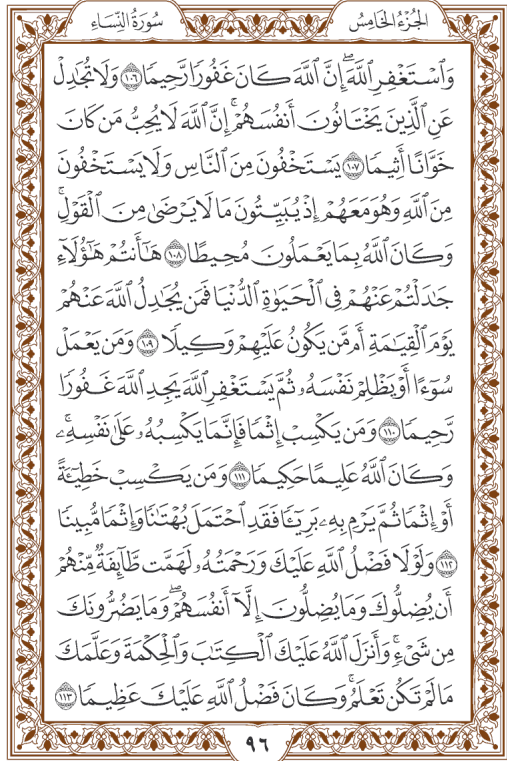 الجُزْءُ الخَامِسُ
سُورَةُ النِّسَاءِ
وَٱسْتَغْفِرِ ٱللَّهَۖ إِنَّ ٱللَّهَ كَانَ غَفُورًا رَّحِيمًا ١٠٦ وَلَا تُجَٰدِلْ
عَنِ ٱلَّذِينَ يَخْتَانُونَ أَنفُسَهُمْۚ إِنَّ ٱللَّهَ لَا يُحِبُّ مَن كَانَ
خَوَّانًا أَثِيمًا ١٠٧ يَسْتَخْفُونَ مِنَ ٱلنَّاسِ وَلَا يَسْتَخْفُونَ
مِنَ ٱللَّهِ وَهُوَ مَعَهُمْ إِذْ يُبَيِّتُونَ مَا لَا يَرْضَىٰ مِنَ ٱلْقَوْلِۚ
وَكَانَ ٱللَّهُ بِمَا يَعْمَلُونَ مُحِيطًا ١٠٨ هَٰٓأَنتُمْ هَٰٓؤُلَآءِ
جَٰدَلْتُمْ عَنْهُمْ فِى ٱلْحَيَوٰةِ ٱلدُّنْيَا فَمَن يُجَٰدِلُ ٱللَّهَ عَنْهُمْ
يَوْمَ ٱلْقِيَٰمَةِ أَم مَّن يَكُونُ عَلَيْهِمْ وَكِيلًا ١٠٩ وَمَن يَعْمَلْ
سُوٓءًا أَوْ يَظْلِمْ نَفْسَهُۥ ثُمَّ يَسْتَغْفِرِ ٱللَّهَ يَجِدِ ٱللَّهَ غَفُورًا
رَّحِيمًا ١١٠ وَمَن يَكْسِبْ إِثْمًا فَإِنَّمَا يَكْسِبُهُۥ عَلَىٰ نَفْسِهِۦۚ
وَكَانَ ٱللَّهُ عَلِيمًا حَكِيمًا ١١١ وَمَن يَكْسِبْ خَطِيٓـَٔةً
أَوْ إِثْمًا ثُمَّ يَرْمِ بِهِۦ بَرِيٓـًٔا فَقَدِ ٱحْتَمَلَ بُهْتَٰنًا وَإِثْمًا مُّبِينًا
١١٢ وَلَوْلَا فَضْلُ ٱللَّهِ عَلَيْكَ وَرَحْمَتُهُۥ لَهَمَّت طَّآئِفَةٌ مِّنْهُمْ
أَن يُضِلُّوكَ وَمَا يُضِلُّونَ إِلَّآ أَنفُسَهُمْۖ وَمَا يَضُرُّونَكَ
مِن شَىْءٍۚ وَأَنزَلَ ٱللَّهُ عَلَيْكَ ٱلْكِتَٰبَ وَٱلْحِكْمَةَ وَعَلَّمَكَ
مَا لَمْ تَكُن تَعْلَمُۚ وَكَانَ فَضْلُ ٱللَّهِ عَلَيْكَ عَظِيمًا ١١٣
٩٦